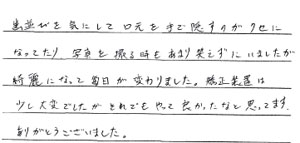 歯並びを気にして口元を手で隠すのがクセに
なってたり 写真を撮る時もあまり笑えずにいましたが
綺麗になって毎日が変わりました。矯正装置は
少し大変でしたがそれでもやって良かったなと思ってます。
ありがとうございました。